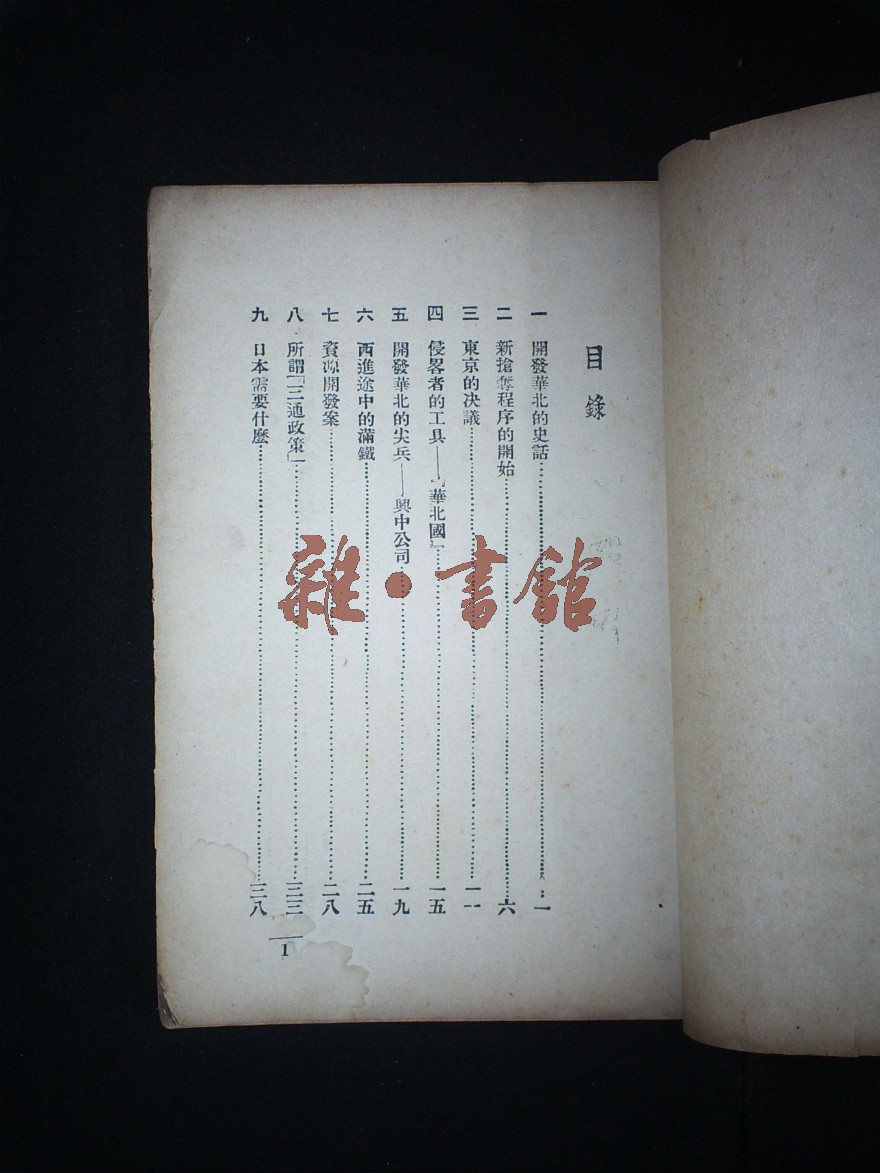 目錄
一 開發華北的史話……一
二 新搶奪程序的開始……六
三 東京的決議……一一
四 侵畧者的工具——「華北國」……一五
五 開發華北的尖兵——興中公司……一九
六 西進途中的滿鐵……二五
七 資源開發案……二八
八 所謂「三通政策」……三三
九 日本需要什麼……三八
1
雜·書館